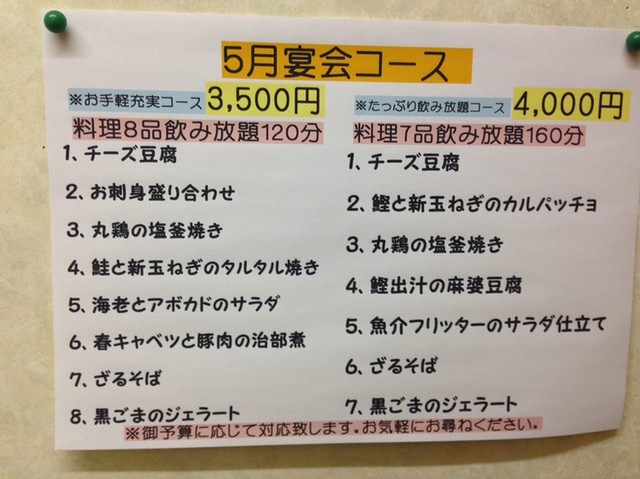 5月宴会コース
※お手軽充実コース 3,500円
料理8品飲み放題120分
1、チーズ豆腐
2、お刺身盛り合わせ
3、丸鶏の塩釜焼き
4、鮭と新玉ねぎのタルタル焼き
5、海老とアボカドのサラダ
6、春キャベツと豚肉の治部煮
7、ざるそば
8、黒ごまのジェラート
※たっぷり飲み放題コース 4,000円
料理7品飲み放題160分
1、チーズ豆腐
2、鰹と新玉ねぎのカルパッチョ
3、丸鶏の塩釜焼き
4、鰹出汁の麻婆豆腐
5、魚介フリッターのサラダ仕立て
6、ざるそば
7、黒ごまのジェラート
※御予算に応じて対応致します。お気軽にお尋ねください。